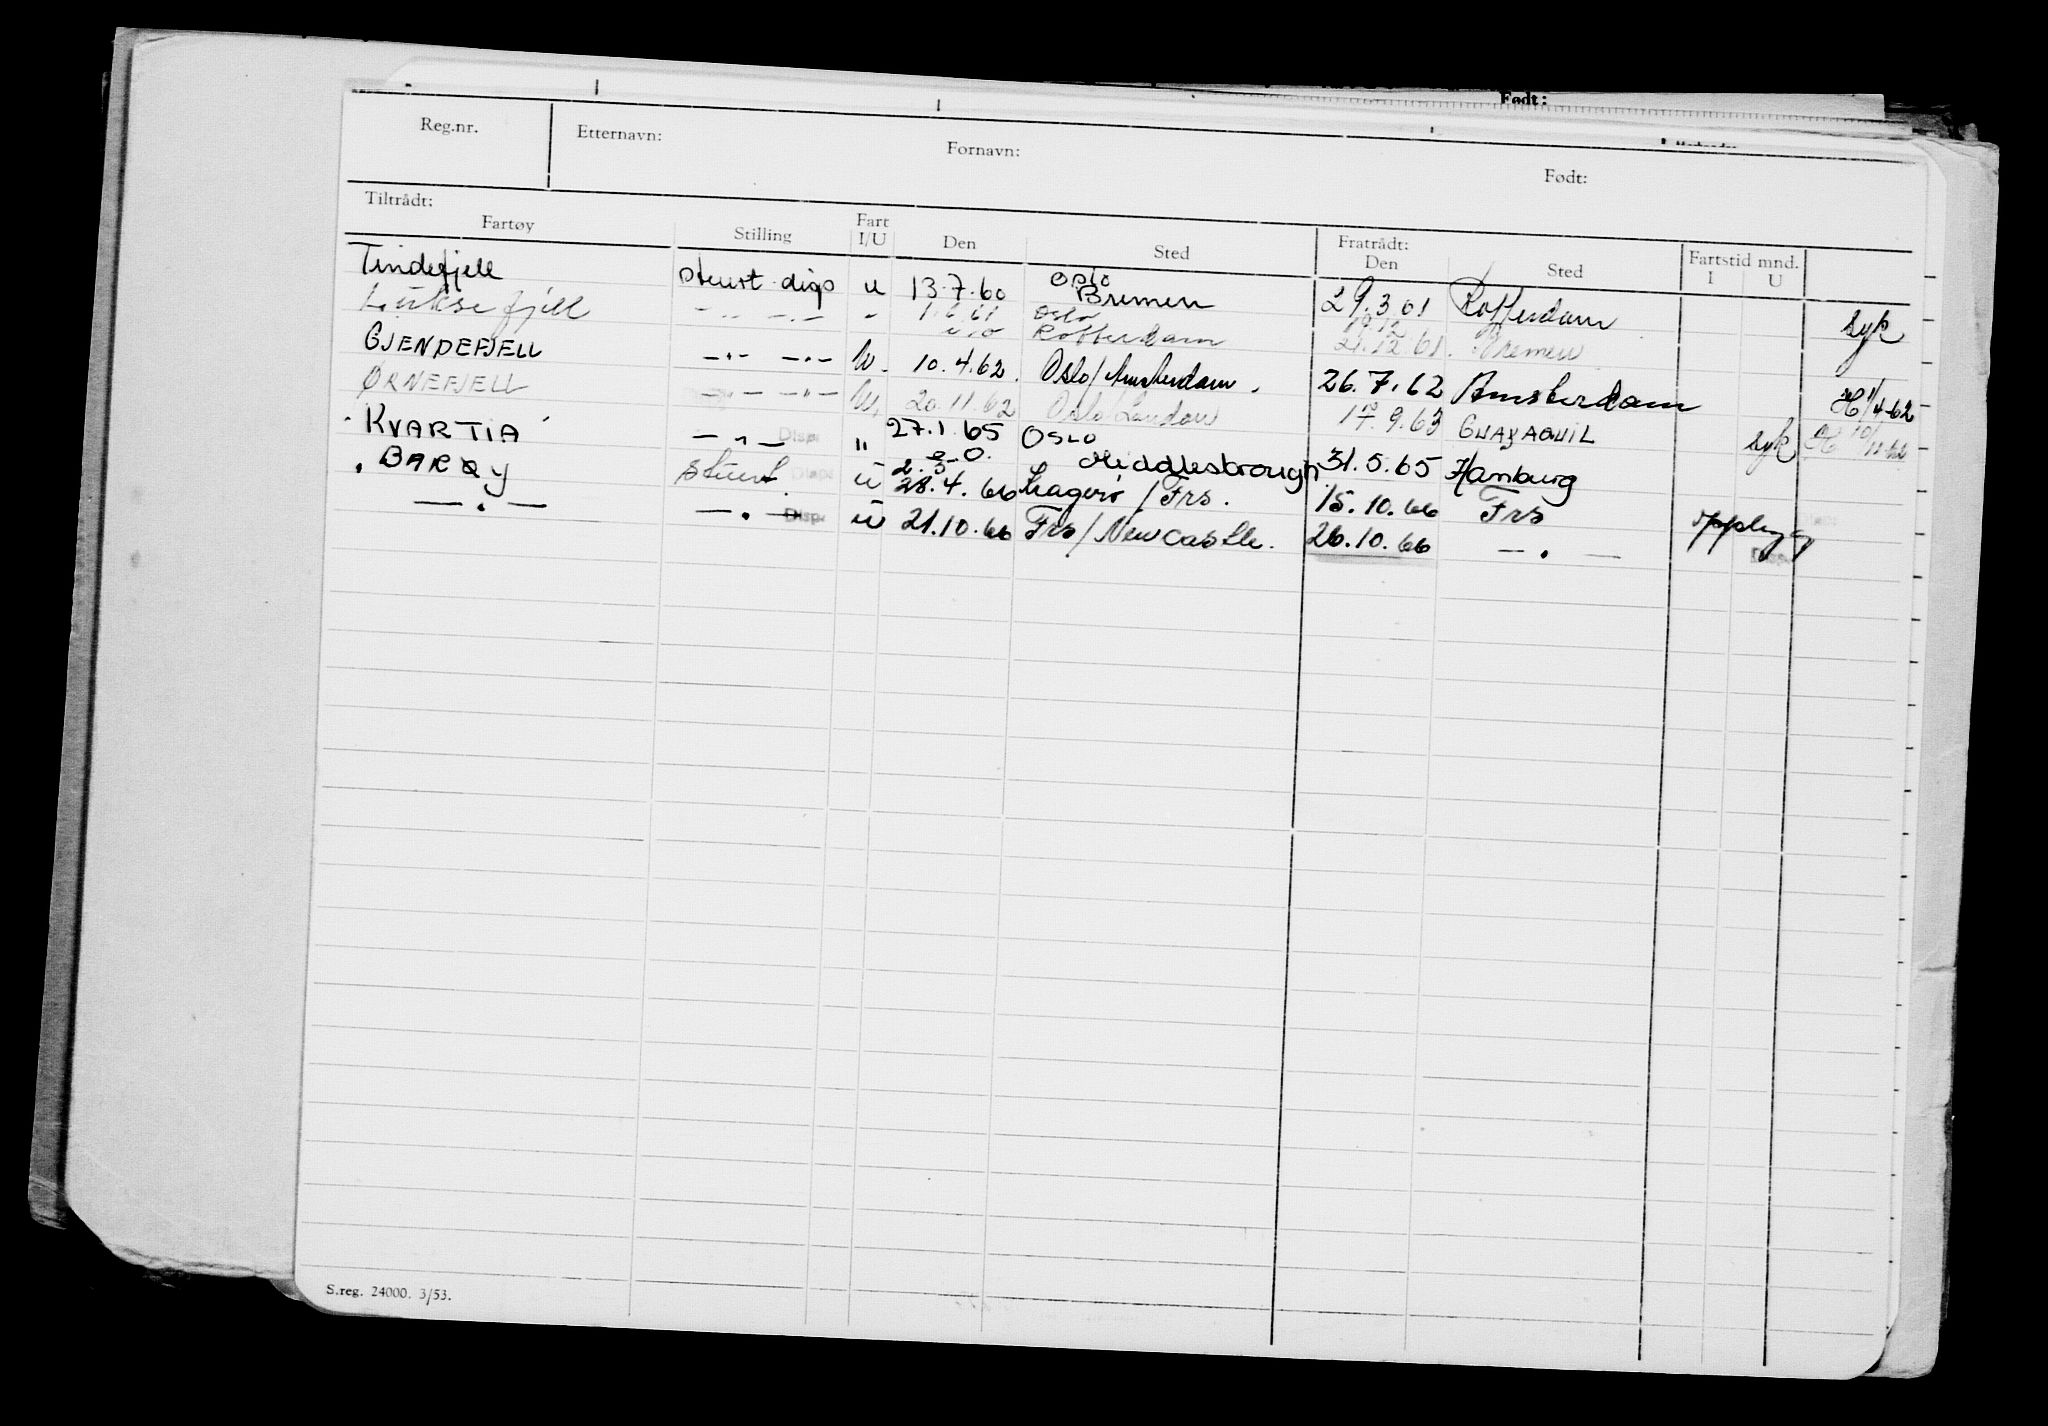 Født:
Reg.nr. Etternavn: Fornavn: Født:
Tiltrådt: Fratrådt:
Fartøy Stilling Fart I/U Den Sted Den Sted Fartstid mnd. I U
Tindefjell stuert disp u 13.7.60 Oslo Bremen 29.3.61 Rotterdam syk
Luksefjell — " — — " — " 1.6.61 Oslo Rotterdam 19.12 21.12.61. Bremen
GJENDEFJELL — " — — " — U. 10.4.62. Oslo/Amsterdam. 26.7.62 Amsterdam H 1/4-62
ØRNEFJELL — " — — " — U. 20.11.62 Oslo London 17.9.63 GUAYAQUIL syk H 10/11-62
KVARTIA — " — Disp. " 27.1.65 OSLO Middlesbrough 31.5.65 Hamburg
BARØY stuert. Disp. u 28.4.66 / Frs. 15.10.66 Frs
— " — — " — Disp. u 21.10.66 Frs/Newcastle. 26.10.66 — " — opplegg
S.reg. 24000. 3/53.